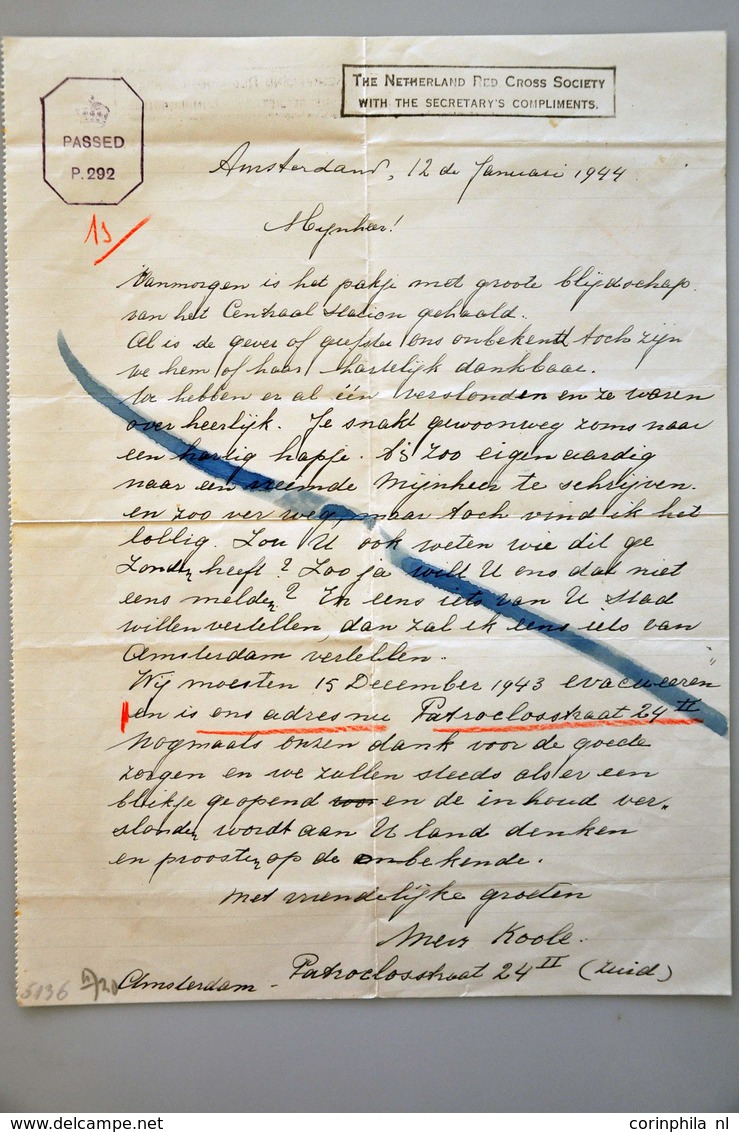 THE NETHERLAND RED CROSS SOCIETY
WITH THE SECRETARY'S COMPLIMENTS.
PASSED
P.292
Amsterdam, 12 de Januari 1944
Mijnheer!
Vanmorgen is het pakje met groote blijdschap
van het Centraal Station gehaald.
Al is de gever of geefster ons onbekend toch zijn
we hem of haar hartelijk dankbaar.
We hebben er al één verslonden en ze waren
overheerlijk. Je snakt gewoonweg zoms naar
een hartig hapje. 't Is zoo eigenaardig
naar een vreemde Mijnheer te schrijven.
en zoo ver weg, maar toch vind ik het
lollig. Zou U ook weten wie dit ge
zonden heeft? Zoo ja wilt U ons dat niet
eens melden? En eens iets van U Stad
willen vertellen, dan zal ik eens iets van
Amsterdam vertellen.
Wij moesten 15 December 1943 evacueeren"
en is ons adres nu Patroclosstraat 24 II
Nogmaals onzen dank voor de goede
zorgen en we zullen steeds als er een
blikje geopend en de inhoud ver„
slonden wordt aan U land denken
en proosten op de onbekende.
Met vriendelijke groeten
Koole.
Patroclosstraat 24 II (Zuid)
Amsterdam -
5136
corinphila nl